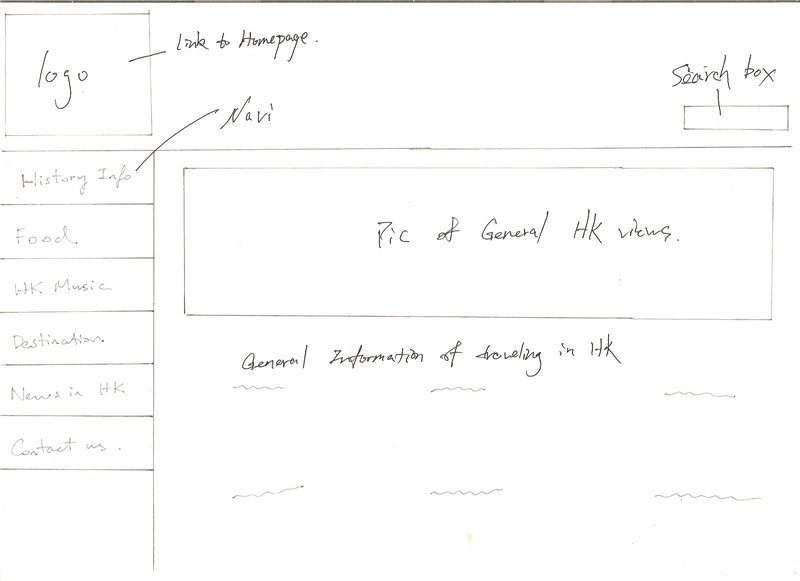 logo
Link to Homepage.
Search box
Navi
History Info
Food
HK Music
Destination.
News in HK
Contact us.
Pic of General HK views.
General Information of traveling in HK